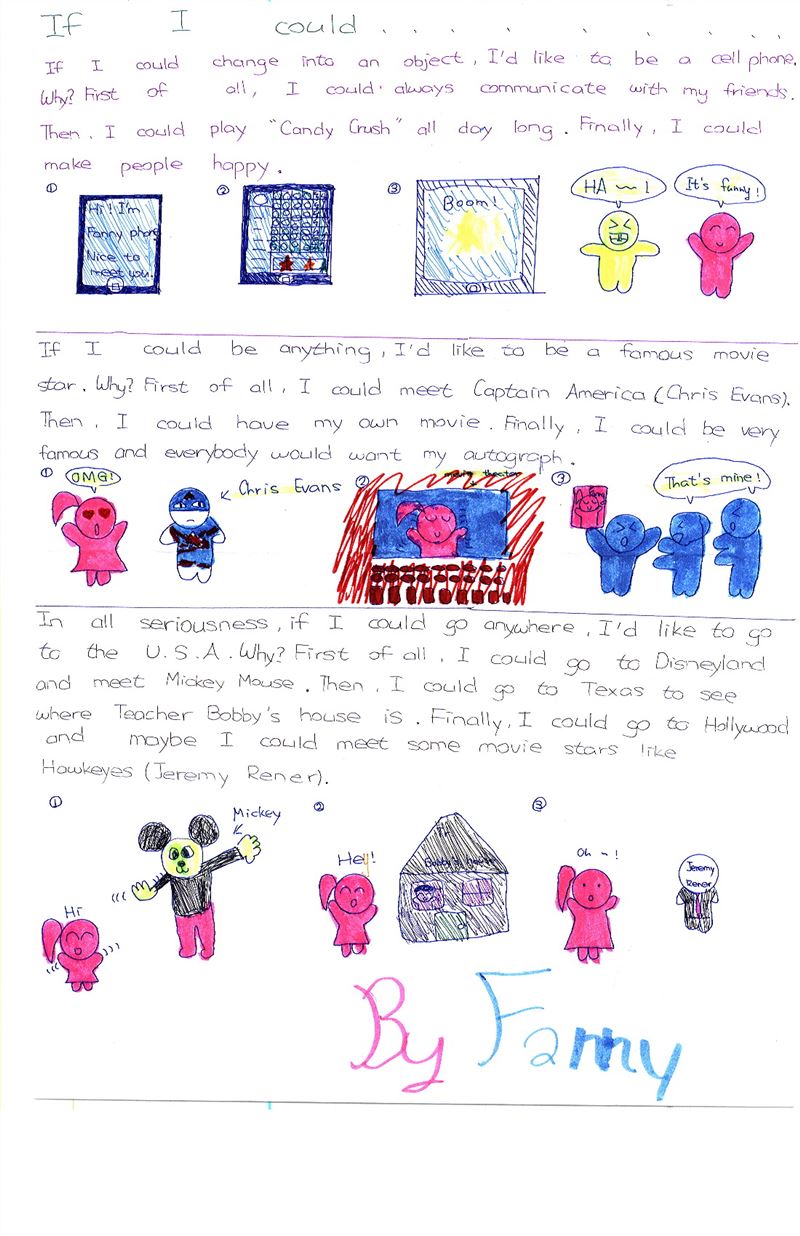 If I could . . . . . . . . .
If I could change into an object, I'd like to be a cell phone.
Why? First of all, I could always communicate with my friends.
Then, I could play "Candy Crush" all day long. Finally, I could
make people happy.
① ② ③
Hi! I'm
Fanny phone
Nice to
meet you.
Boom!
HA ~ !
It's funny!
If I could be anything, I'd like to be a famous movie
star. Why? First of all, I could meet Captain America (Chris Evans).
Then, I could have my own movie. Finally, I could be very
famous and everybody would want my autograph.
① ② ③
OMG!
Chris Evans
movie theater
That's mine!
In all seriousness, if I could go anywhere, I'd like to go
to the U.S.A. Why? First of all, I could go to Disneyland
and meet Mickey Mouse. Then, I could go to Texas to see
where Teacher Bobby's house is. Finally, I could go to Hollywood
and maybe I could meet some movie stars like
Hawkeyes (Jeremy Rener).
① ② ③
Hi
Mickey
Hey!
Bobby's house
Oh ~ !
Jeremy
Rener
By Fanny